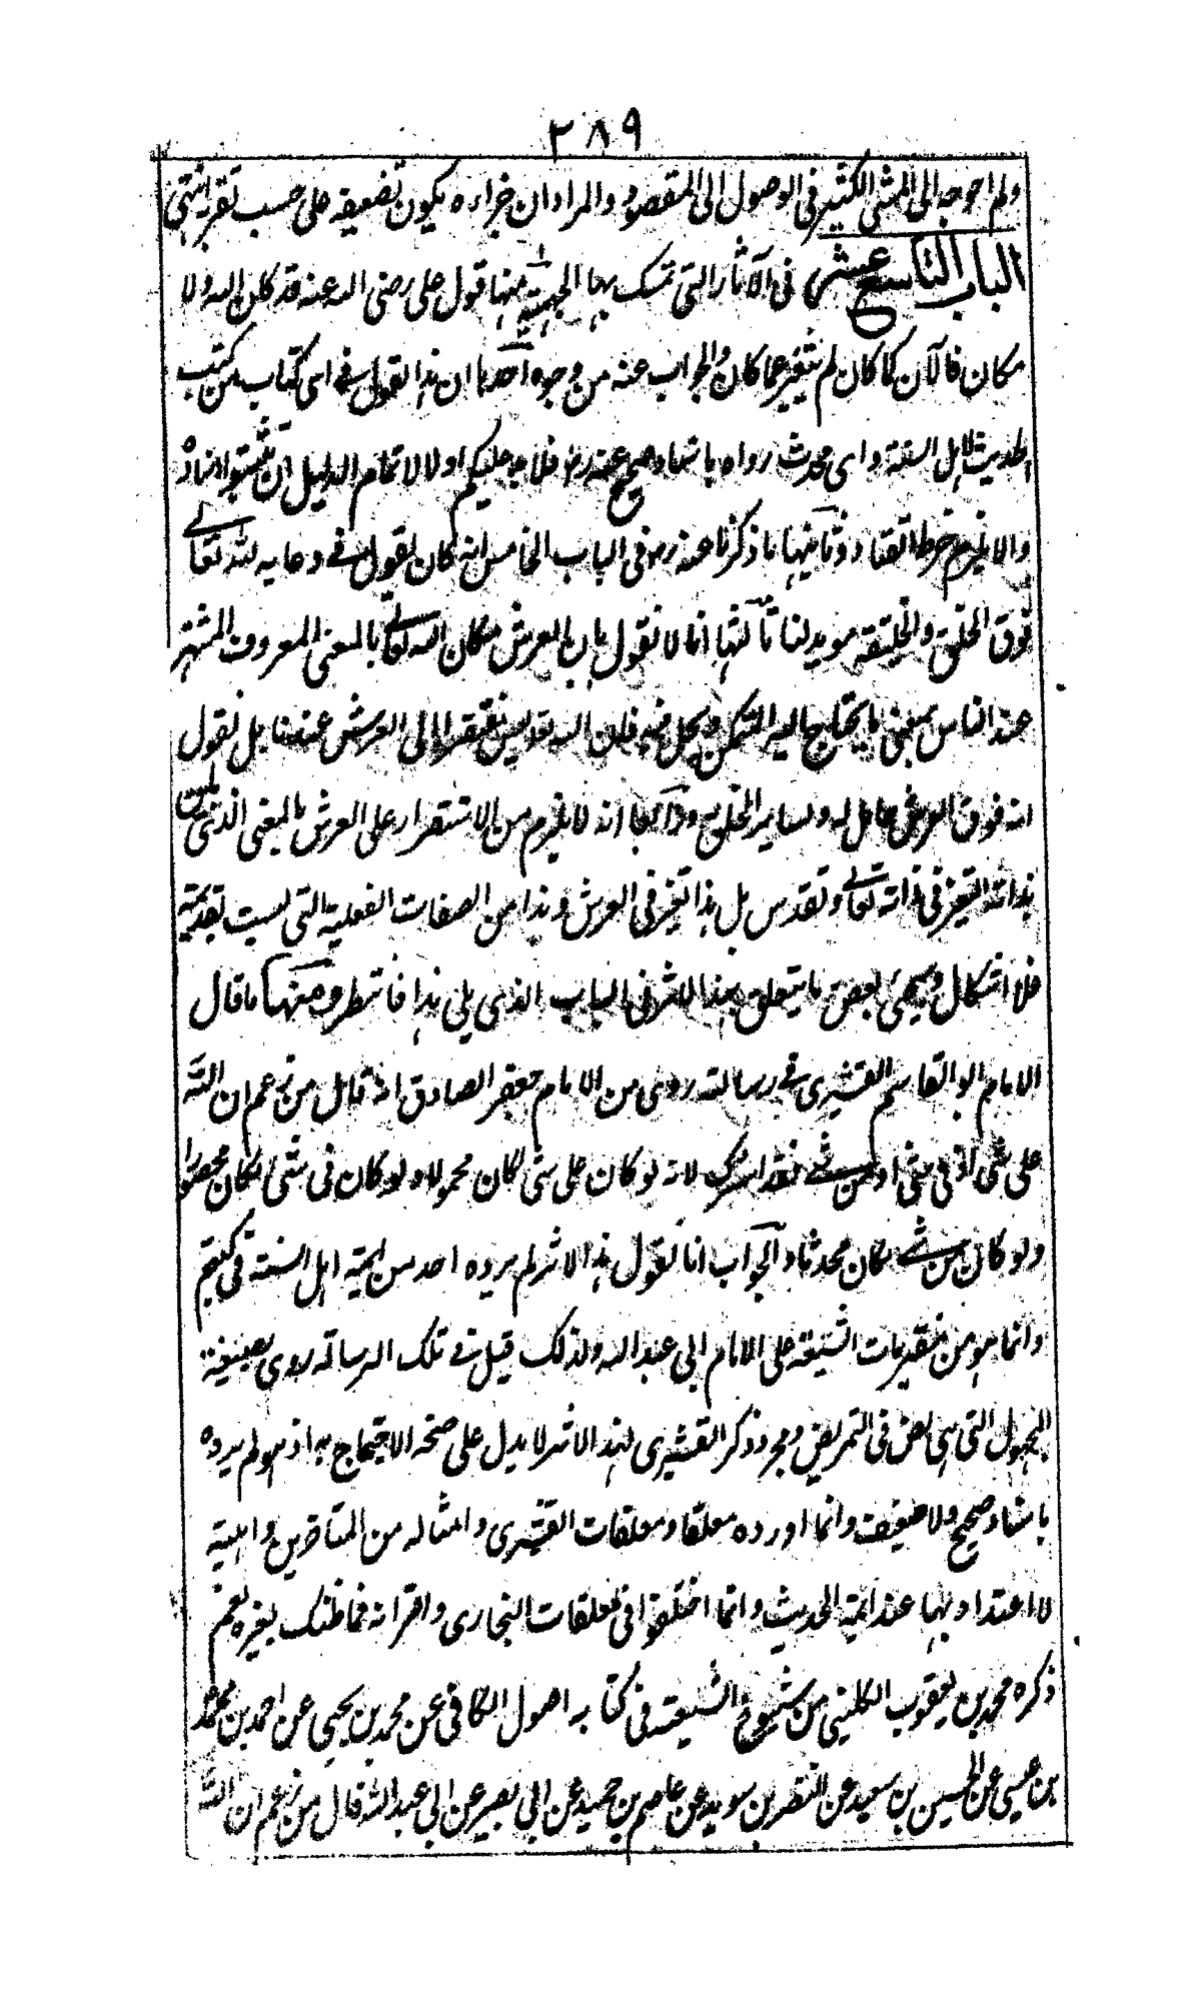 ٢٨٩
ولم احوجه الى المشى الكثير فى الوصول الى المقصود والمراد ان جزاءه يكون تضعيفه على حسب تقربه انتهى
الباب التاسع عشر فى الآثار التى تمسك بها الجهمية منها قول على رضى الله عنه قد كان الله ولا
مكان فالآن كما كان لم يتغير عما كان والجواب عنه من وجوه احدها ان هذا القول فى اى كتاب من كتب
الحديث لاهل السنة واى محدث رواه باسناد صحيح عنه رض فلا بد عليكم اولا لاتمام الدليل ان تثبتوا اسناده
والا يلزم خرط القتاد وثانيها ما ذكرنا عنه رض فى الباب الخامس انه كان يقول فى دعايه لله تعالى
فوق الخلق والخليقة مويد لنا ثالثها انا لا نقول بان العرش مكان الله تعالى بالمعنى المعروف المشتهر
عند الناس بمعنى ما يحتاج اليه المتمكن ويحل فيه فان الله تعا ليس مفتقرا الى العرش عندنا بل نقول
انه فوق العرش حامل له ولساير الخلق به ورابعا انه لا يلزم من الاستقرار على العرش بالمعنى الذى يليق
بذاته التغير فى ذاته تعالى وتقدس بل هذا تغير فى العرش وهذا من الصفات الفعلية التى ليست بقديمة
فلا اشكال ويجئ بعض ما يتعلق بهذا الاثر فى الباب الذى يلى هذا فانتظره ومنها ما قال
الامام ابو القاسم القشيرى فى رسالته روى من الامام جعفر الصادق انه قال من زعم ان الله
على شى او فى شى او من شے فقد اشرك لانه لو كان على شى لكان محمولا ولو كان فى شى لكان محصورا
ولو كان من شے لكان محدثا والجواب انا نقول هذا الاثر لم يروه احد من ايمة اهل السنة فى كتبهم
وانما هو من مفتريات الشيعة على الامام ابى عبد الله ولذلك قيل فى تلك الرسالة روى بصيغة
المجهول التى هى نص فى التمريض ومجرد ذكر القشيرى لهذا الاثر لا يدل على صحة الاحتجاج به اذ هو لم يروه
باسناد صحيح ولا ضعيف وانما اورده معلقا ومعلقات القشيرى وامثاله من المتاخرين واهية
لا اعتداد بها عند ايمة الحديث وانما اختلفوا فى معلقات البخارى واقرانه فما ظنك بغيره نعم
ذكره محمد بن يعقوب الكلينى من شيوخ الشيعة فى كتابه اصول الكافى عن محمد بن يحيى عن احمد بن محمد
بن عيسى عن الحسين بن سعيد عن النضر بن سويد عن عاصم بن حميد عن ابى بصير عن ابى عبد الله قال من زعم ان الله